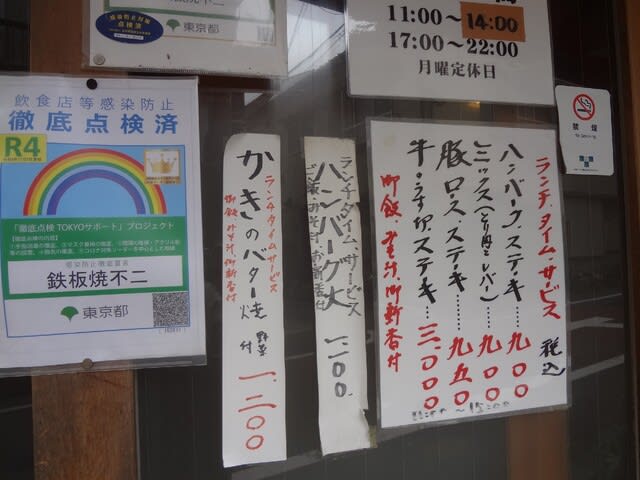 感染防止対策
点検済
東京都
11:00～14:00
17:00～22:00
月曜定休日
飲食店等感染防止
徹底点検済
R4
「徹底点検 TOKYOサポート」プロジェクト
感染防止徹底宣言
鉄板焼不二
東京都
ランチタイムサービス
かきのバター焼
野菜付
一、二〇〇
御飯、みそ汁、御新香付
ランチタイム・サービス
ハンバーグ大
一、一〇〇
ご飯、みそ汁、お新香付
ランチ・タイム・サービス
税込
ハンバーグ・ステーキ……九〇〇
ミックス(とり肉とレバー)……九〇〇
豚ロース・ステーキ……九五〇
牛・ステーキ…三、〇〇〇
御飯、みそ汁、御新香付
禁煙